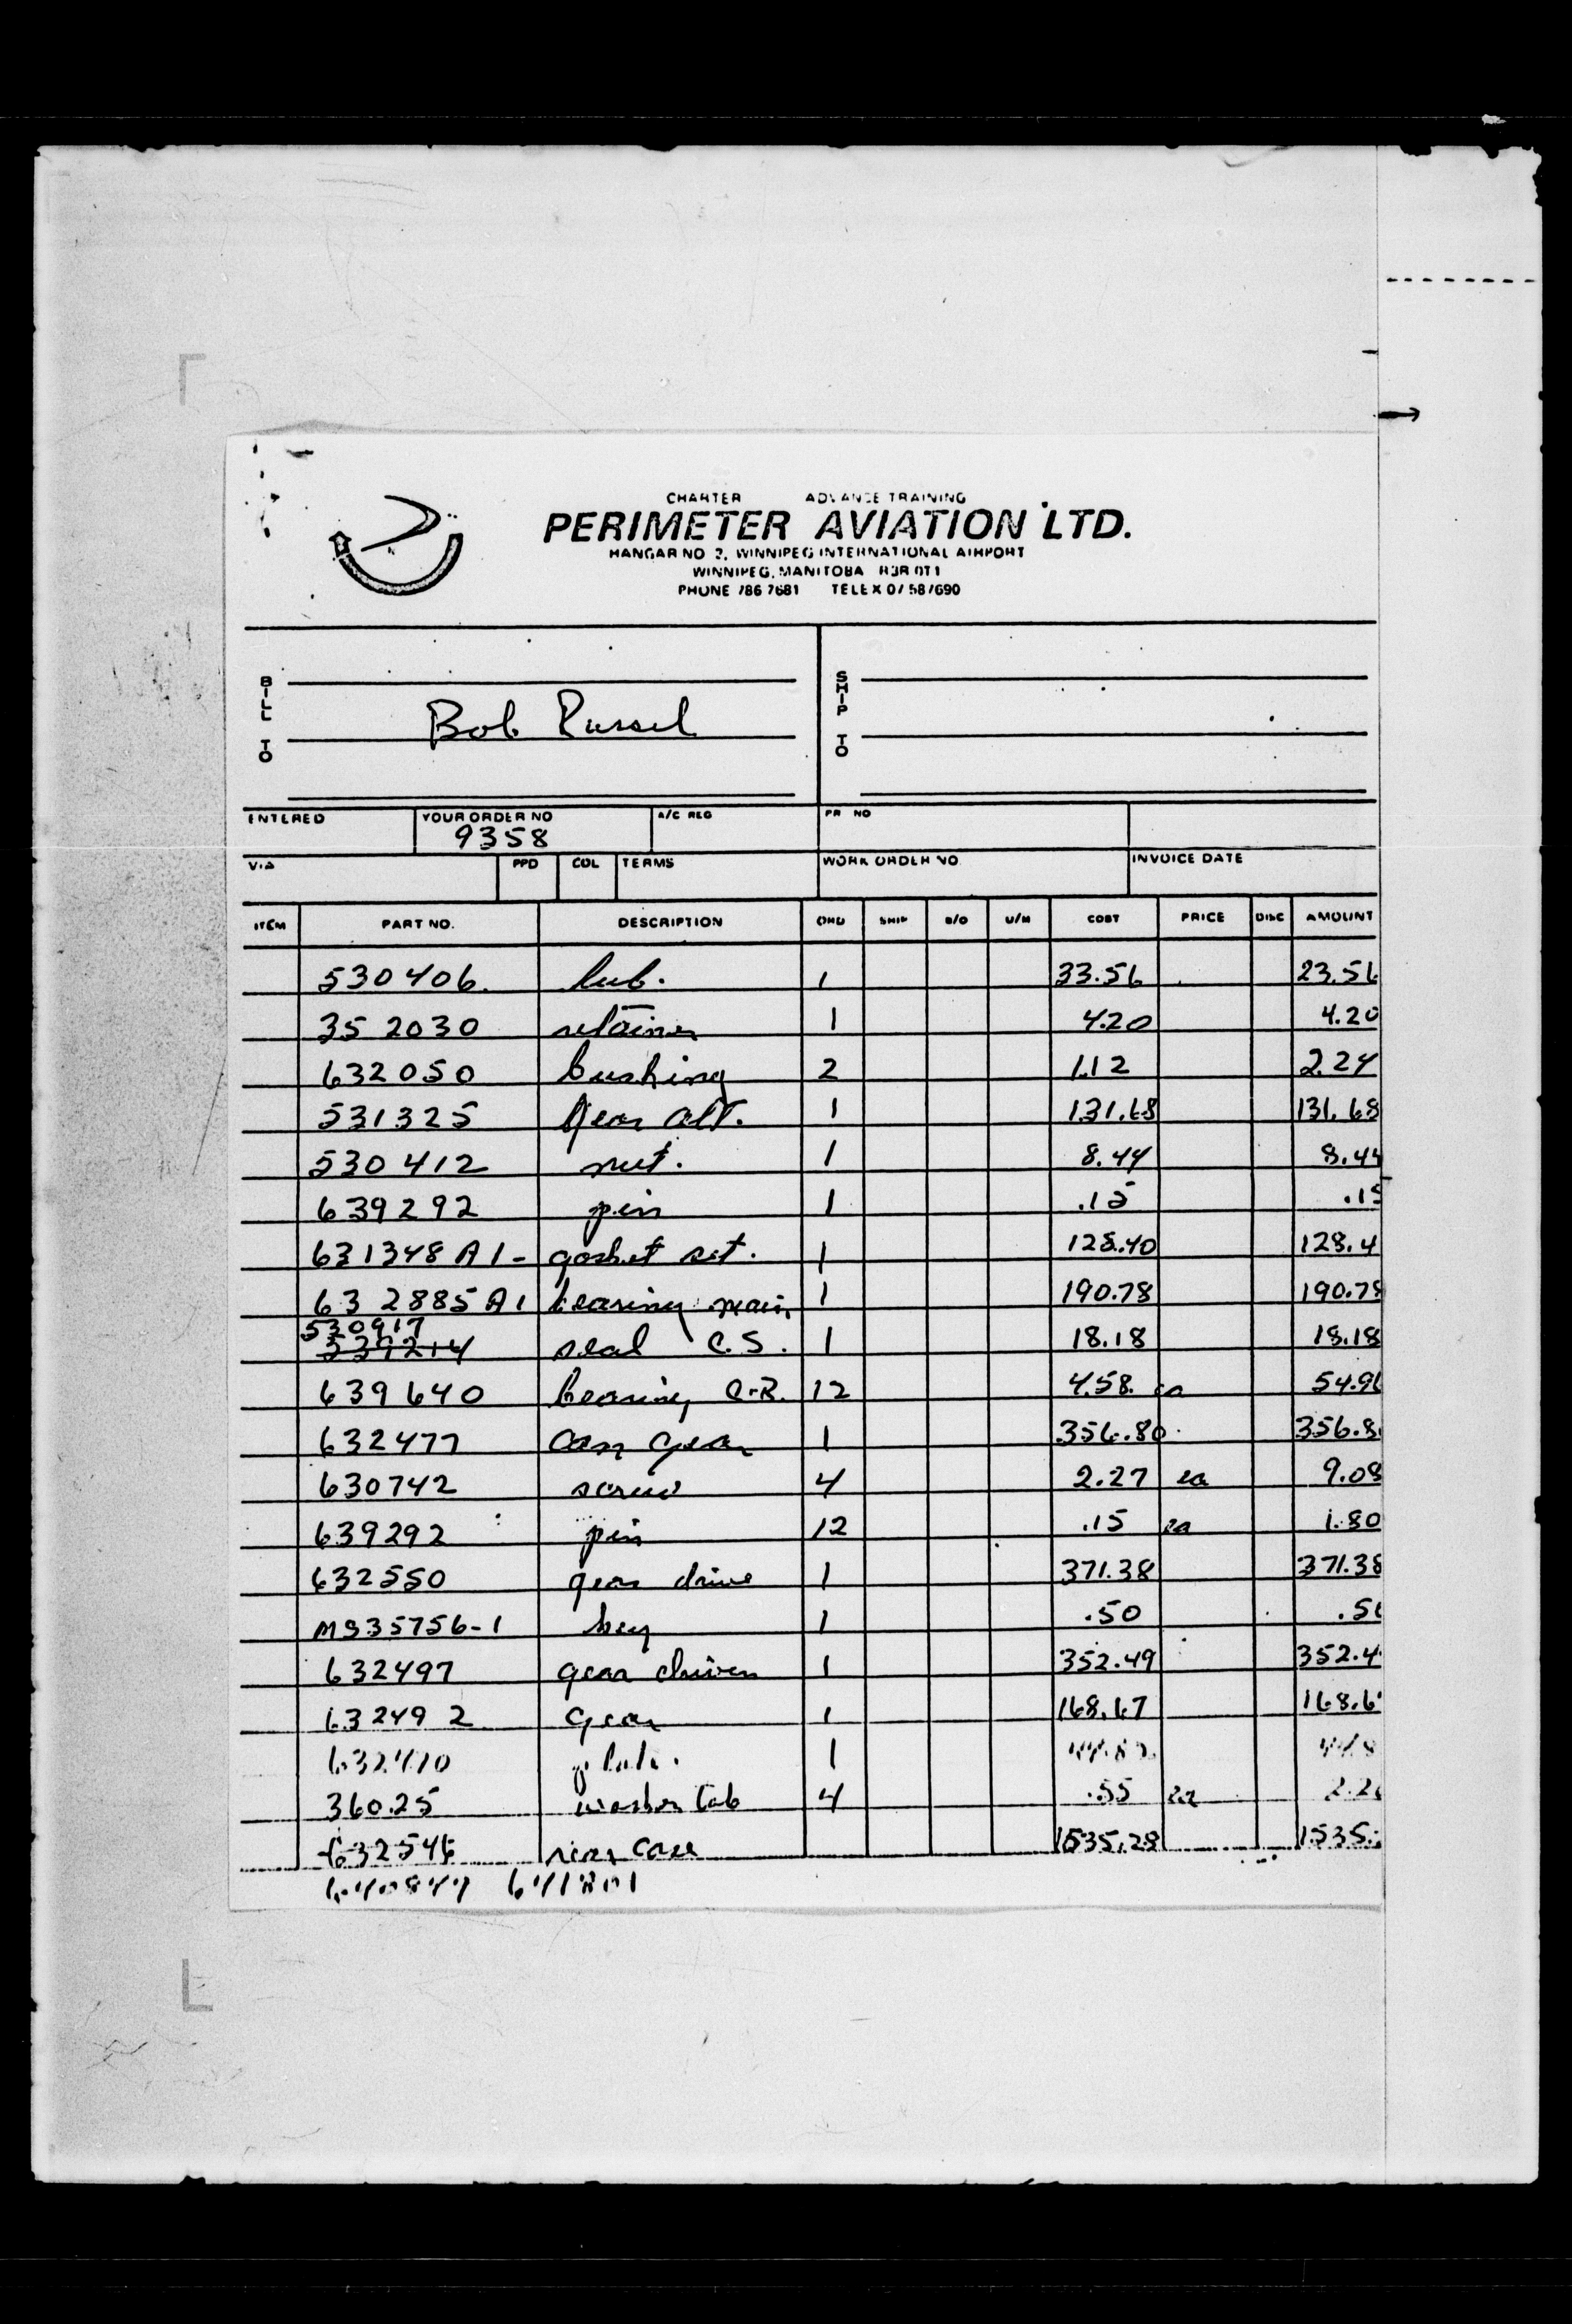 CHARTER ADVANCE TRAINING
PERIMETER AVIATION LTD.
HANGAR NO 2, WINNIPEG INTERNATIONAL AIRPORT
WINNIPEG, MANITOBA R3R 0T1
PHONE 786 7681 TELEX 07 587690
BILL TO
Bob Russel
SHIP TO
ENTERED YOUR ORDER NO A/C REG PR NO
9358
VIA PPD COL TERMS WORK ORDER NO. INVOICE DATE
ITEM PART NO. DESCRIPTION ORD SHIP B/O U/M COST PRICE DISC AMOUNT
530406. 1 33.56 23.56
352030 retainer 1 4.20 4.20
632050 bushing 2 1.12 2.24
531325 gear alt. 1 131.68 131.68
530412 nut. 1 8.44 8.44
639292 pin 1 .15 .15
631348 A1 - gasket set. 1 128.40 128.4
632885 A1 bearing main 1 190.78 190.78
530917
539214 seal C.S. 1 18.18 18.18
639640 bearing C.R. 12 4.58 ea 54.96
632477 cam gear 1 356.80 356.8
630742 screw 4 2.27 ea 9.08
639292 pin 12 .15 ea 1.80
632550 gear drive 1 371.38 371.38
MS35756-1 key 1 .50 .50
632497 gear driven 1 352.49 352.4
632492 gear 1 168.67 168.6
1
36025 washer tab 4 .55 ea 2.20
632546 rear case 1535.28 1535.
641801